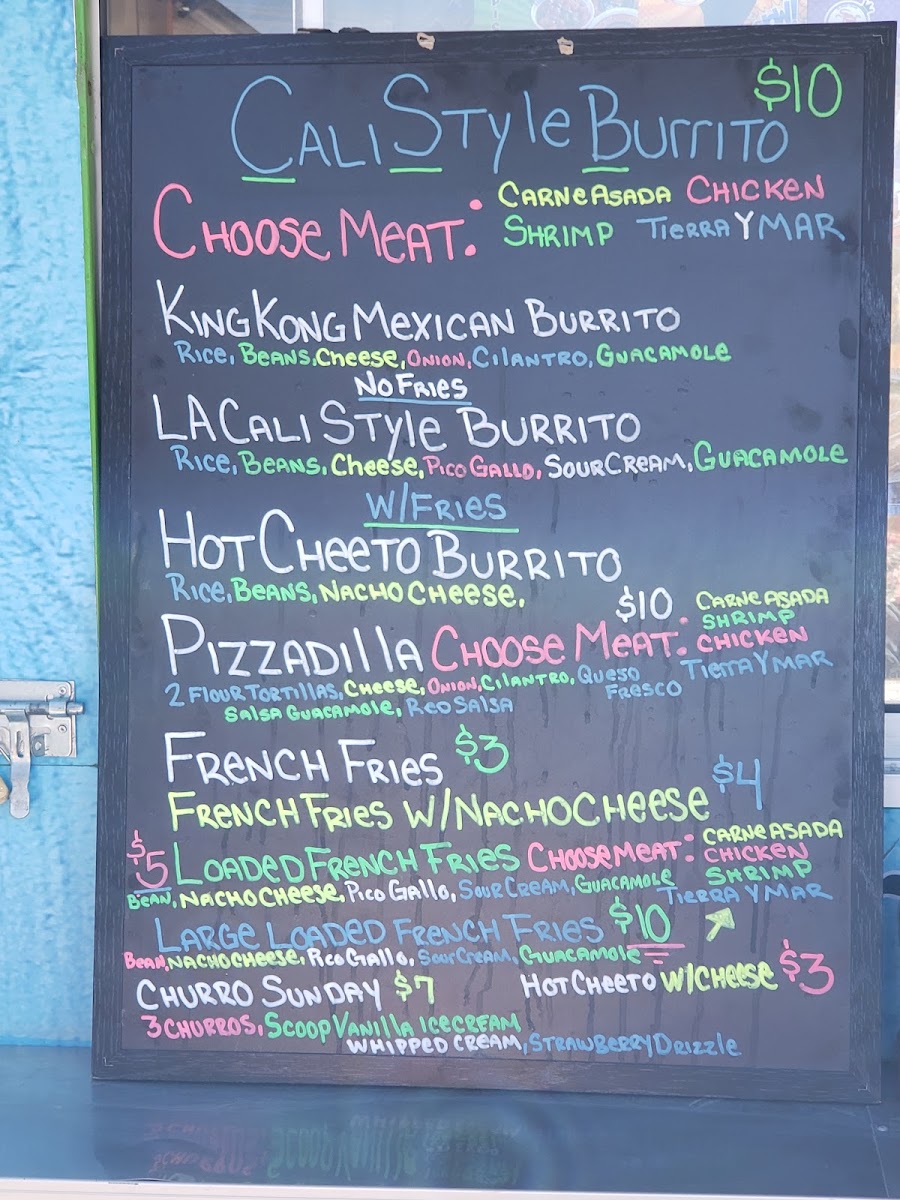 $10
CALI STYLE BURRITO
CHOOSE MEAT: CARNE ASADA CHICKEN
SHRIMP TIERRA Y MAR
KING KONG MEXICAN BURRITO
RICE, BEANS, CHEESE, ONION, CILANTRO, GUACAMOLE
NO FRIES
LA CALI STYLE BURRITO
RICE, BEANS, CHEESE, PICO GALLO, SOUR CREAM, GUACAMOLE
W/FRIES
HOT CHEETO BURRITO
RICE, BEANS, NACHO CHEESE,
$10 CARNE ASADA
SHRIMP
PIZZADILLA CHOOSE MEAT: CHICKEN
TIERRA Y MAR
2 FLOUR TORTILLAS, CHEESE, ONION, CILANTRO, QUESO
FRESCO
SALSA GUACAMOLE, RED SALSA
FRENCH FRIES $3
FRENCH FRIES W/NACHO CHEESE $4
$5 LOADED FRENCH FRIES CHOOSE MEAT: CARNE ASADA
CHICKEN
SHRIMP
TIERRA Y MAR
BEAN, NACHO CHEESE, PICO GALLO, SOUR CREAM, GUACAMOLE
LARGE LOADED FRENCH FRIES $10
BEAN, NACHO CHEESE, PICO GALLO, SOUR CREAM, GUACAMOLE
CHURRO SUNDAY $7 HOT CHEETO W/CHEESE $3
3 CHURROS, SCOOP VANILLA ICE CREAM
WHIPPED CREAM, STRAWBERRY DRIZZLE